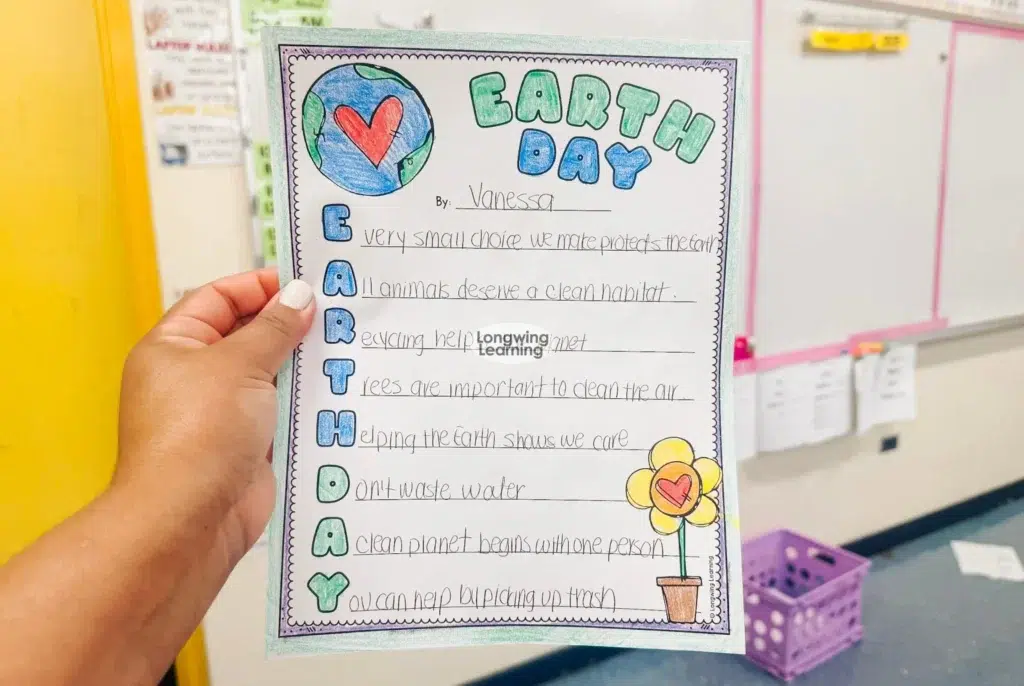 LAPTOP RULES
EARTH
DAY
By: Vanessa
Every small choice we make protects the Earth
All animals deserve a clean habitat.
Recycling help
Longwing
Learning
Trees are important to clean the air.
Helping the Earth shows we care
Don't waste water
A clean planet begins with one person
You can help by picking up trash
© Longwing Learning